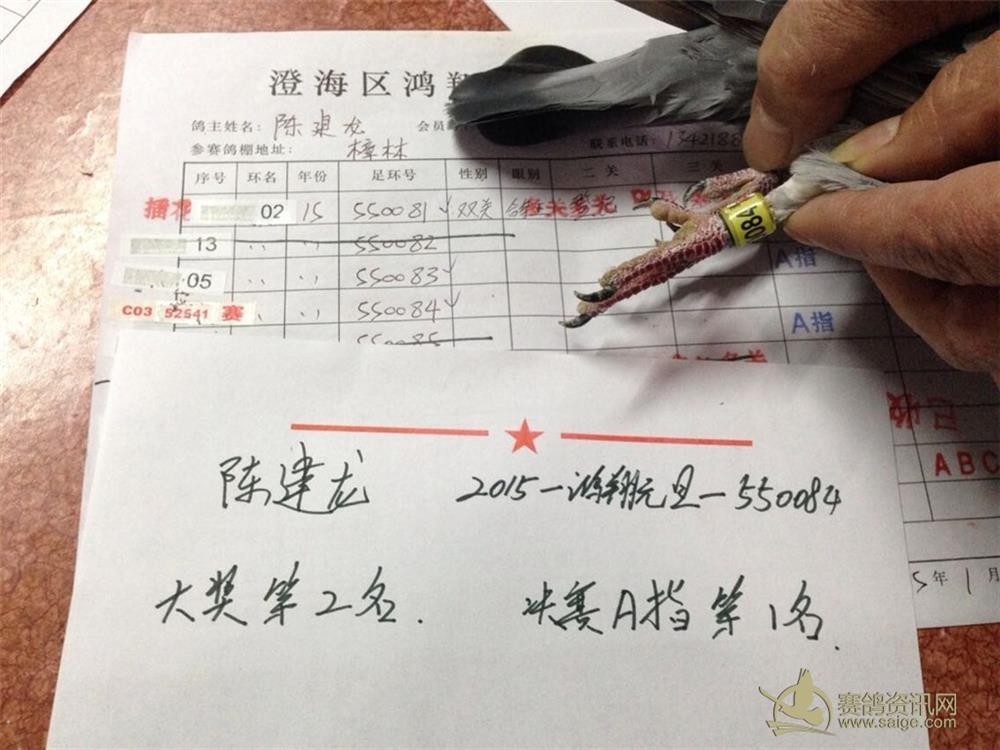 澄海区鸿翔
鸽主姓名： 陈建龙 会员
参赛鸽棚地址： 樟林 联系电话：1342188
序号 环名 年份 足环号 性别 眼别 二关 三关
插花 02 15 550081 双关
13 〃 〃 550082
05 〃 〃 550083 A指
C03 52541 赛 〃 〃 550084 A指
550085
084
已收
ABC
陈建龙 2015-鸿翔元旦-550084
5年1月
大奖第2名. 决赛A指第1名.
赛鸽资讯网
www.saige.com